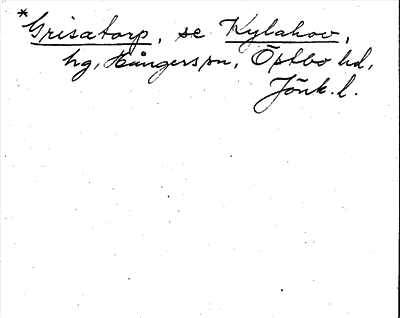 *Grisatorp, se Kylahov,
hg, Hångers sn, Östbo hd,
Jönk. l.